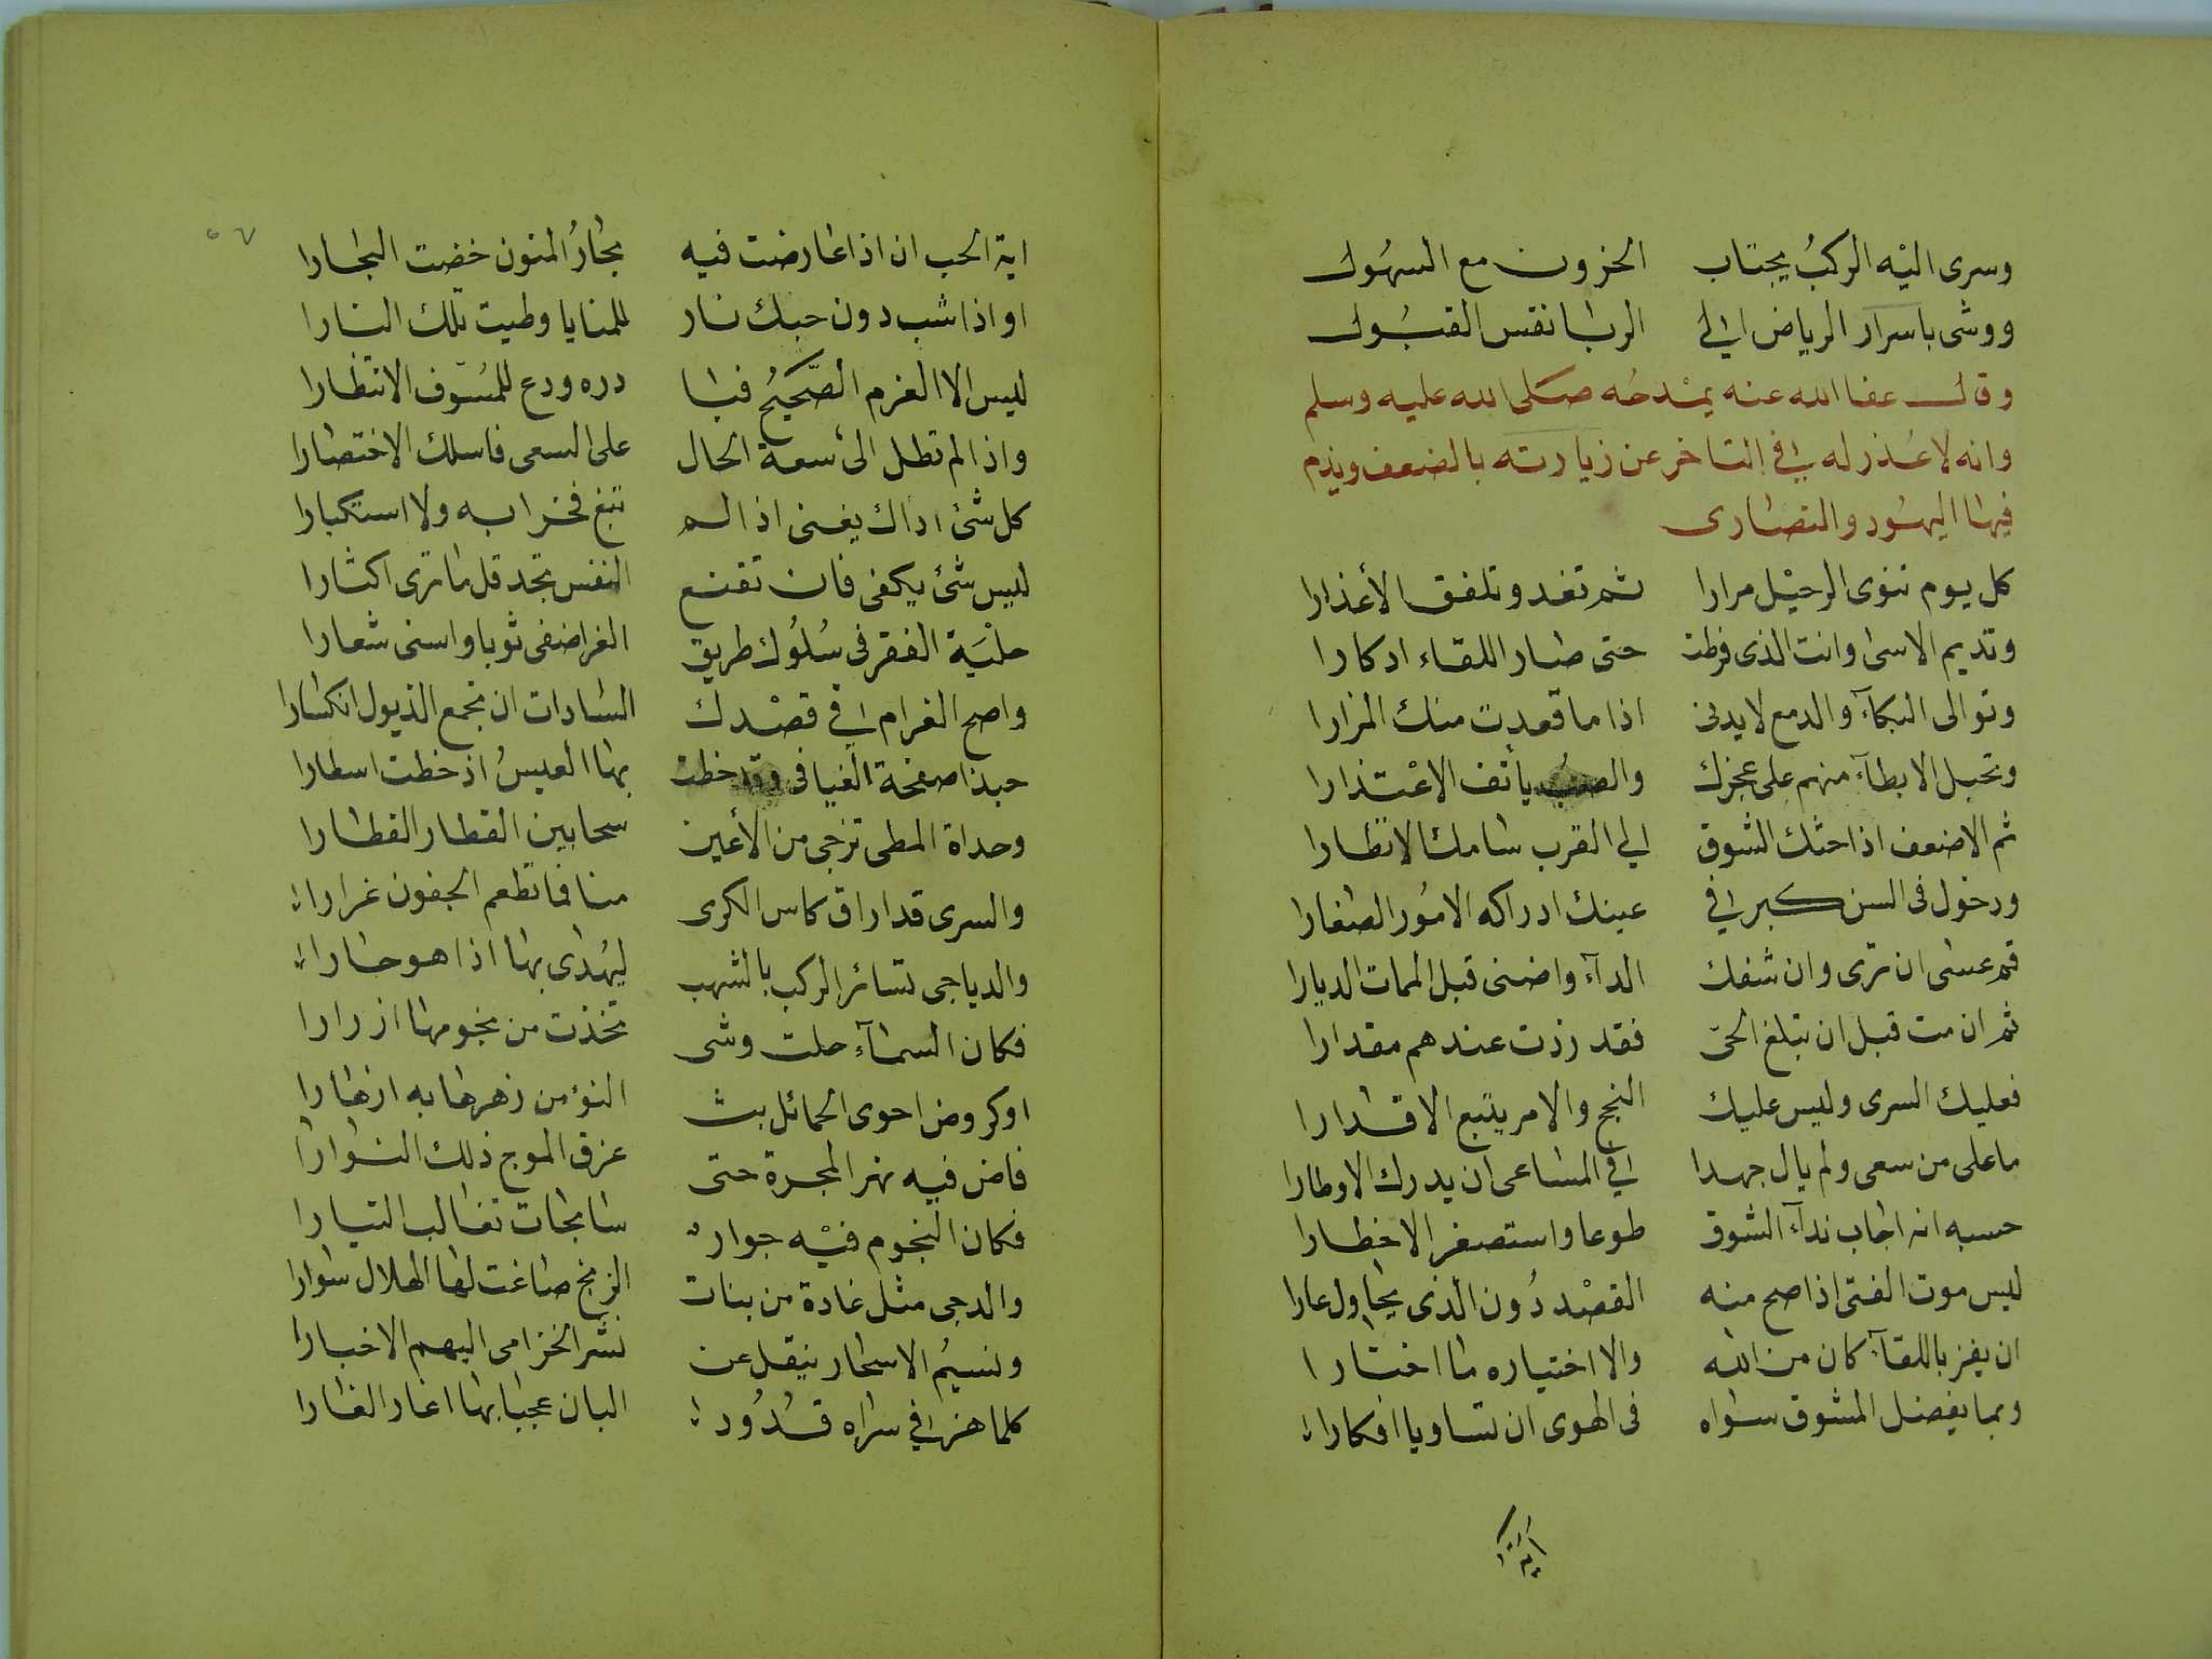 وسرى اليه الركبُ يجتاب الحزون مع السهُول
ووشى باسرار الرياض الى الربا نفس القبُول
وقال عفا الله عنه يمدحُه صلى الله عليه وسلم
وانه لا عُذر له في التاخر عن زيارته بالضعف ويذم
فيها اليهُود والنصارى
كل يوم تنوى الرحيْل مرارا ثم تغدو تلفق الأعذارا
وتديم الاسى وانت الذى فرطت حتى صار اللقاء ادكارا
وتوالى البكآء والدمع لا يدنى اذا ما قعدت منك المزارا
وتحيل الابطآء منهم على عجزك والصبُ يأنف الاعْتذارا
ثم الاضعف اذا حثك الشوق الى القرب سامك الانتظارا
ودخول فى السن كبر في عينك ادراكه الامُور الصغارا
قم عسى ان ترى وان شفك الدآء واضنى قبل الممات الديارا
ثم ان مت قبل ان تبلغ الحى فقد زدت عندهم مقدارا
فعليك السرى وليس عليك النجح والامر يتبع الاقدارا
ما على من سعى ولم يال جهدا في المساعى ان يدرك الاوطارا
حسبه انه اجاب ندآء الشوق طوعا واستصغر الاخطارا
ليس موت الفتى اذا صح منه القصْد دُون الذى يحاول عارا
ان يفز باللقآء كان من الله والا اختياره ما اختارا
وبما يفضل المشوق سواه فى الهوى ان تساويا افكارا
اية الحب
اية الحب ان اذا عارضت فيه بحارُ المنون خضت البحارا
او اذا شب دون حبك نار للمنايا وطيت تلك النارا
ليس الا العزم الصَّحيحُ فبا دره ودع للمسُوّف الانتظارا
واذا لم تطل الى سعة الحال على السعى فاسلك الاختصارا
كل شئ اداك يغنى اذا لم تبغ فخرا به ولا استكبارا
ليس شئ يكفى فان تقنع النفس تجد قل ما ترى اكثارا
حليَة الفقر فى سُلُوك طريق الغر اضفى ثوبا واسنى شعارا
واصح الغرام في قصْدك السادات ان تجمع الذيول انكسارا
حبذا صفحة الفيافى وقد خطت بها العيسُ اذ خطت اسطارا
وحداة المطى تزجى من الأعين سحابين القطار القطارا
والسرى قد اراق كاس الكرى منا فما تطعم الجفون غرارا
والدياجى تسائر الركب بالشهب ليهُدى بها اذا هو حارا
فكان السمآء حلت وشى تخذت من نجومها ازرارا
او كروض احوى الخمائل بث النؤ من زهرها به ازهارا
فاض فيه نهر المجرة حتى غرق الموج ذلك النوارا
فكان النجوم فيْه جوار سابحات تغالب التيارا
والدجى مثل غادة من بنات الزنج صاغت لها الهلال سوارا
ونسيمُ الاسحار ينقل عن نشر الخزامى اليهم الاخبارا
كلما هز في سراه قدُودا البان عجبا بها اغار الغارا